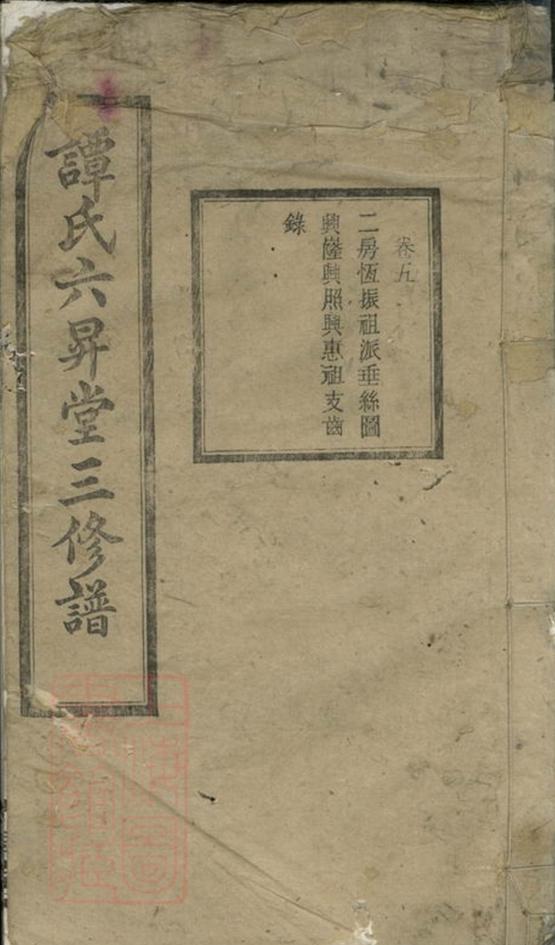 卷五
二房恆振祖派垂絲圖
興隆興照興惠祖支齒
錄
譚氏六昇堂三修譜